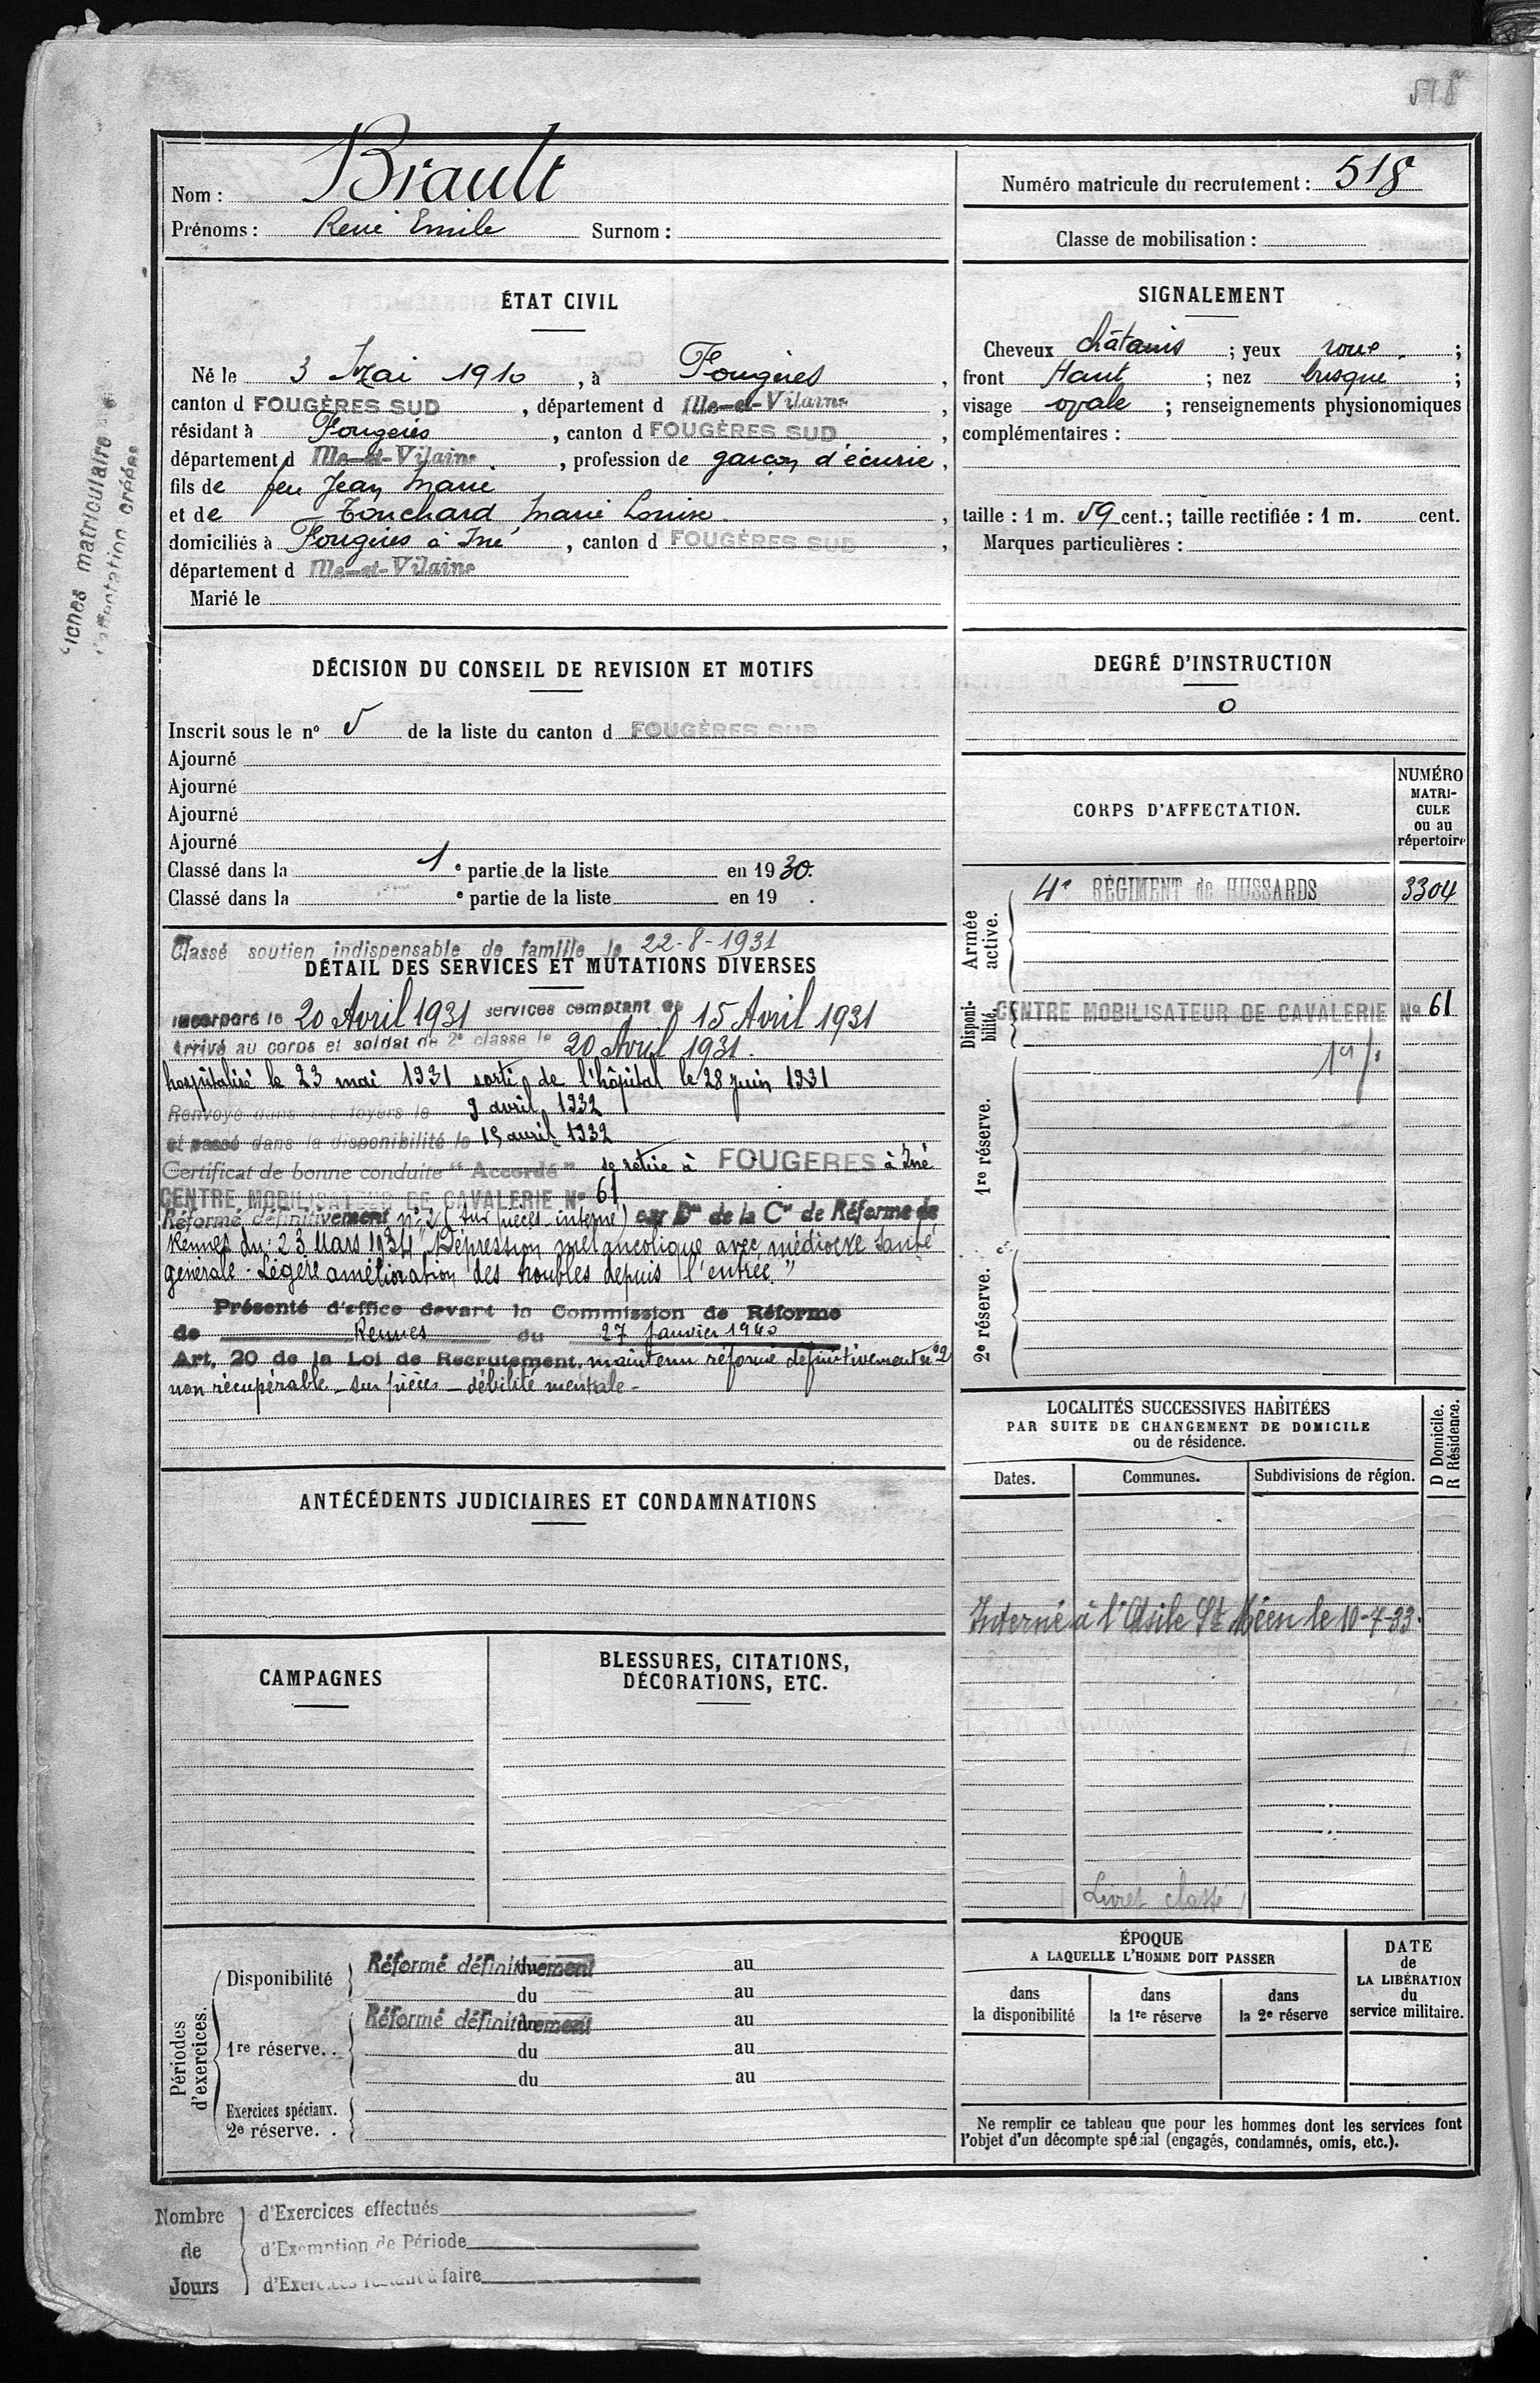 518
Nom : Briault
Prénoms : René Emile Surnom :
Numéro matricule du recrutement : 518
Classe de mobilisation :
ÉTAT CIVIL
Né le 3 Mai 1910, à Fougères,
canton d FOUGÈRES SUD, département d Ille-et-Vilaine,
résidant à Fougères, canton d FOUGÈRES SUD,
département d Ille-et-Vilaine, profession de garçon d'écurie,
fils de feu Jean Marie
et de Touchard Marie Louise,
domiciliés à Fougères à Iné, canton d FOUGÈRES SUD,
département d Ille-et-Vilaine
Marié le
SIGNALEMENT
Cheveux châtains ; yeux roux ;
front Haut ; nez busqué ;
visage ovale ; renseignements physionomiques
complémentaires :
taille : 1 m. 59 cent. ; taille rectifiée : 1 m. cent.
Marques particulières :
matriculaire
créées
DÉCISION DU CONSEIL DE REVISION ET MOTIFS
Inscrit sous le nº 5 de la liste du canton d FOUGÈRES SUD
Ajourné
Ajourné
Ajourné
Ajourné
Classé dans la 1e partie de la liste en 1930.
Classé dans la e partie de la liste en 19 .
DEGRÉ D'INSTRUCTION
0
CORPS D'AFFECTATION.
NUMÉRO MATRI-CULE ou au répertoire
Armée active.
4e RÉGIMENT de HUSSARDS 3304
Disponi-bilité.
CENTRE MOBILISATEUR DE CAVALERIE Nº 61
1re réserve.
2e réserve.
Classé soutien indispensable de famille le 22-8-1931
DÉTAIL DES SERVICES ET MUTATIONS DIVERSES
Incorporé le 20 Avril 1931 services comptant du 15 Avril 1931
Arrivé au corps et soldat de 2e classe le 20 Avril 1931.
hospitalisé le 23 mai 1931 sorti de l'hôpital le 28 juin 1931
Renvoyé dans ses foyers le 9 avril 1932
et passé dans la disponibilité le 15 avril 1932
Certificat de bonne conduite "Accordé" se retire à FOUGERES à Iné
CENTRE MOBILISATEUR DE CAVALERIE Nº 61
Réformé définitivement nº 2 (sur pièces interné) par Don de la Con de Réforme de
Rennes du : 23 Mars 1934 "Dépression mélancolique avec médiocre santé
générale. Légère amélioration des troubles depuis l'entrée."
Présenté d'office devant la Commission de Réforme
de Rennes du 27 janvier 1940
Art. 20 de la Loi de Recrutement, maintenu réformé définitivement nº 2
non récupérable - sur pièces - débilité mentale -
LOCALITÉS SUCCESSIVES HABITÉES
PAR SUITE DE CHANGEMENT DE DOMICILE
ou de résidence.
Dates. Communes. Subdivisions de région. D Domicile. R Résidence.
Interné à l'Asile St Méen le 10-7-33.
Livret classé
ANTÉCÉDENTS JUDICIAIRES ET CONDAMNATIONS
CAMPAGNES
BLESSURES, CITATIONS,
DÉCORATIONS, ETC.
Périodes d'exercices.
Disponibilité Réformé définitivement au
du au
1re réserve. . Réformé définitivement au
du au
du au
Exercices spéciaux.
2e réserve. .
ÉPOQUE
A LAQUELLE L'HOMME DOIT PASSER
dans la disponibilité
dans la 1re réserve
dans la 2e réserve
DATE de LA LIBÉRATION du service militaire.
Ne remplir ce tableau que pour les hommes dont les services font
l'objet d'un décompte spécial (engagés, condamnés, omis, etc.).
Nombre d'Exercices effectués
de d'Exemption de Période
Jours d'Exercices restant à faire